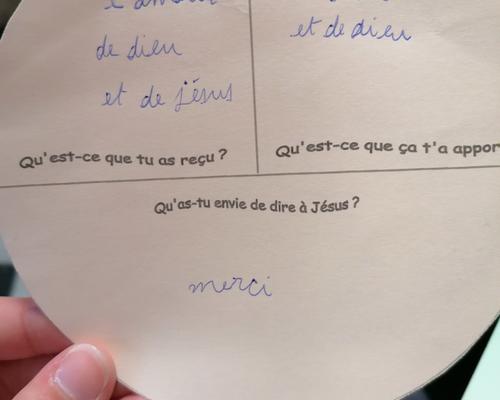 l'amour
de dieu
et de jésus
et de dieu
Qu'est-ce que tu as reçu ?
Qu'est-ce que ça t'a appor
Qu'as-tu envie de dire à Jésus ?
merci